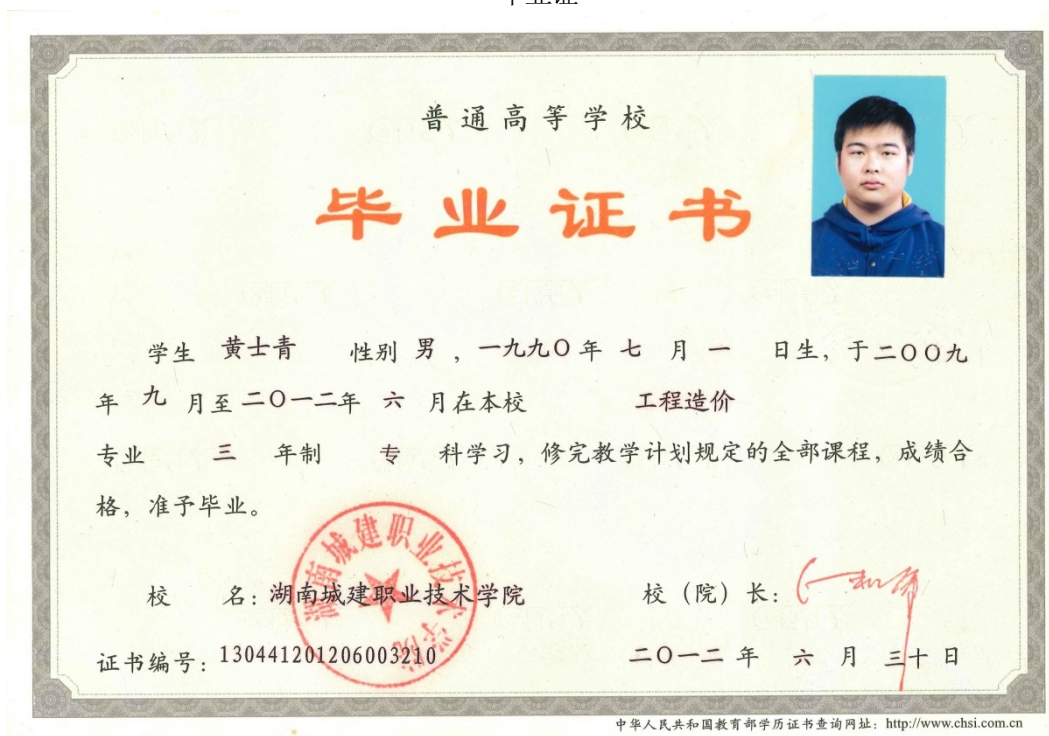 毕业证
普通高等学校
毕业证书
学生 黄士青 性别 男，一九九〇年 七 月 一 日生，于二〇〇九
年 九 月至二〇一二年 六 月在本校 工程造价
专业 三 年制 专 科学习，修完教学计划规定的全部课程，成绩合
格，准予毕业。
湖南城建职业技术学院
校 名：湖南城建职业技术学院 校（院）长：
证书编号：130441201206003210 二〇一二 年 六 月 三十 日
中华人民共和国教育部学历证书查询网址：http://www.chsi.com.cn